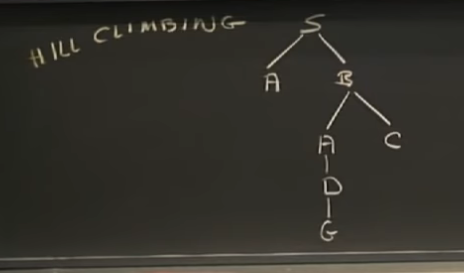 HILL CLIMBING
S
A B
A C
D
G